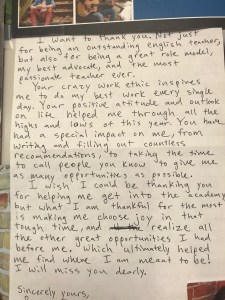 I want to thank you. Not just
for being an outstanding english teacher,
but also for being a great role model,
my best advocate, and the most
passionate teacher ever.
Your crazy work ethic inspires
me to do my best work every single
day. Your positive attitude and outlook
on life helped me through all the
highs and lows of this year. You have
had a special impact on me, from
writing and filling out countless
recommendations, to taking the time
to call people you know to give me
as many opportunities as possible.
I wish I could be thanking you
for helping me get into the academy
but what I am thankful for the most
is making me choose joy in that
tough time, and realize all
the other great opportunities I had
before me. Which ultimately helped
me find where I am meant to be!
I will miss you dearly.
Sincerely yours,